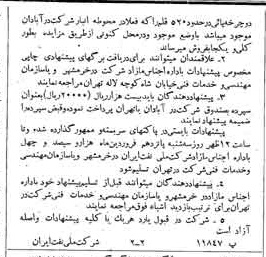 دوچرخه‌پائی در حدود ۵۲۰ قلم را که فعلا در محوطه انبار شرکت در آبادان
موجود میباشد باوضع موجود و در محل کنونی از طریق مزایده بطور
کلی و یکجا بفروش میرساند
۲ـ علاقمندان میتوانند برای دریافت برگهای پیشنهادی چاپی
مخصوص پیشنهادات باداره اجناس مازاد شرکت در خرمشهر و یا سازمان
مهندسی و خدمات فنی خیابان شاه کوچه لاله تهران مراجعه نمایند
۳ـ پیشنهاد دهندگان باید بیست هزار ریال (۲۰۰۰۰ ریال) بعنوان
سپرده بصندوق شرکت در آبادان یا تهران پرداخت نموده و قبض سپرده را
ضمیمه پیشنهاد نمایند
پیشنهادات بایستی در پاکتهای سربسته و ممهور گذارده شده و تا
ساعت ۱۲ ظهر روز سه‌شنبه پانزدهم فروردین‌ماه هزار و سیصد و چهل
باداره اجناس مازاد شرکت ملی نفت ایران در خرمشهر و یا سازمان مهندسی
وخدمات فنی شرکت در تهران تسلیم شود
۴ـ پیشنهاد دهندگان میتوانند قبل از تسلیم پیشنهاد خود باداره
اجناس مازاد در خرمشهر و یا سازمان مهندسی و خدمات فنی شرکت در
تهران برای ترتیب بازدید اشیاء فوق مراجعه نمایند
۵ـ شرکت در قبول یا رد هر یک یا کلیه پیشنهادات واصله
آزاد است
پ ۱۱۸۴۷ ۲-۲ شرکت ملی نفت ایران